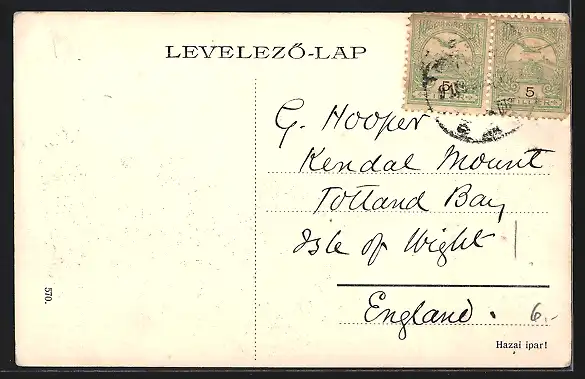 LEVELEZŐ-LAP
5
5
FILLÉR
G. Hooper
Kendal Mount
Totland Bay
Isle of Wight
England.
6.-
Hazai ipar!
570.